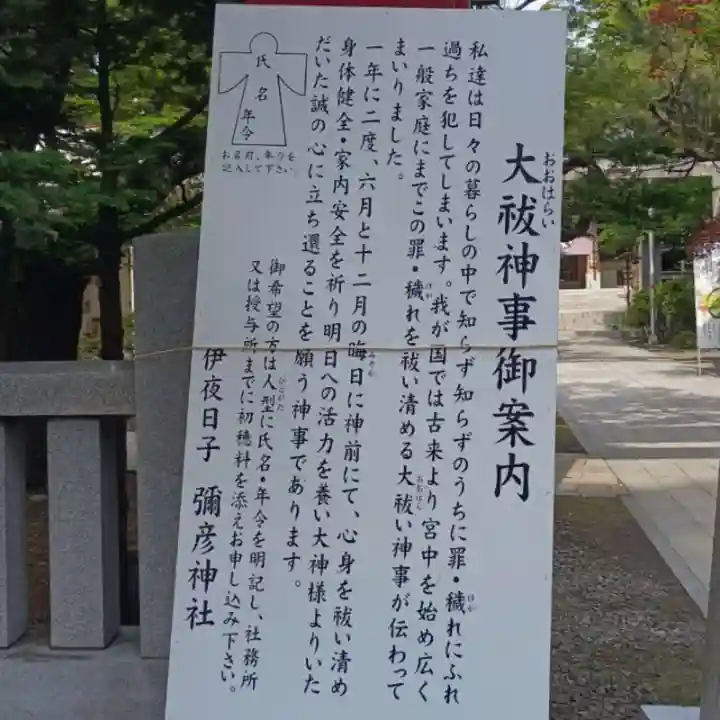 大祓神事御案内
おおはらい
私達は日々の暮らしの中で知らず知らずのうちに罪・穢れにふれ
過ちを犯してしまいます。我が国では古来より宮中を始め広く
一般家庭にまでこの罪・穢れを祓い清める大祓い神事が伝わって
まいりました。
一年に二度、六月と十二月の晦日に神前にて、心身を祓い清め
身体健全・家内安全を祈り明日への活力を養い大神様よりいた
だいた誠の心に立ち還ることを願う神事であります。
御希望の方は人型に氏名・年令を明記し、社務所
又は授与所までに初穂料を添えお申し込み下さい。
伊夜日子 彌彦神社
氏名
年令
お名前、年令を
記入して下さい。